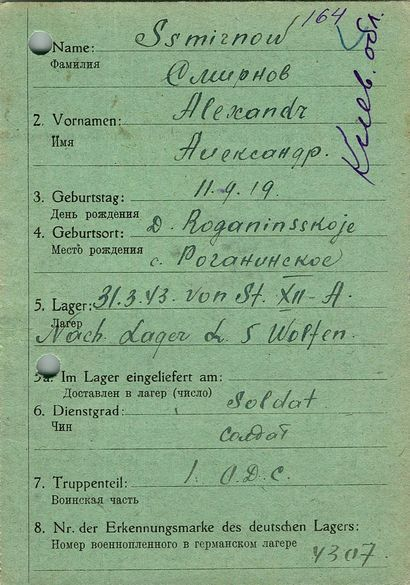 164
Киев. обл.
1. Name: Ssmirnow
Фамилия Смирнов
2. Vornamen: Alexandr
Имя Александр.
3. Geburtstag: 11.9.19.
День рождения
4. Geburtsort: D. Roganinsskoje
Место рождения с. Роганинское
5. Lager: 31.3.43. von St. XII-A.
Лагер
Nach Lager L. 5 Wolfen.
5a. Im Lager eingeliefert am:
Доставлен в лагер (число)
6. Dienstgrad: Soldat
Чин солдат
7. Truppenteil: 1. O.D.C.
Воинская часть
8. Nr. der Erkennungsmarke des deutschen Lagers:
Номер военнопленного в германском лагере 4307